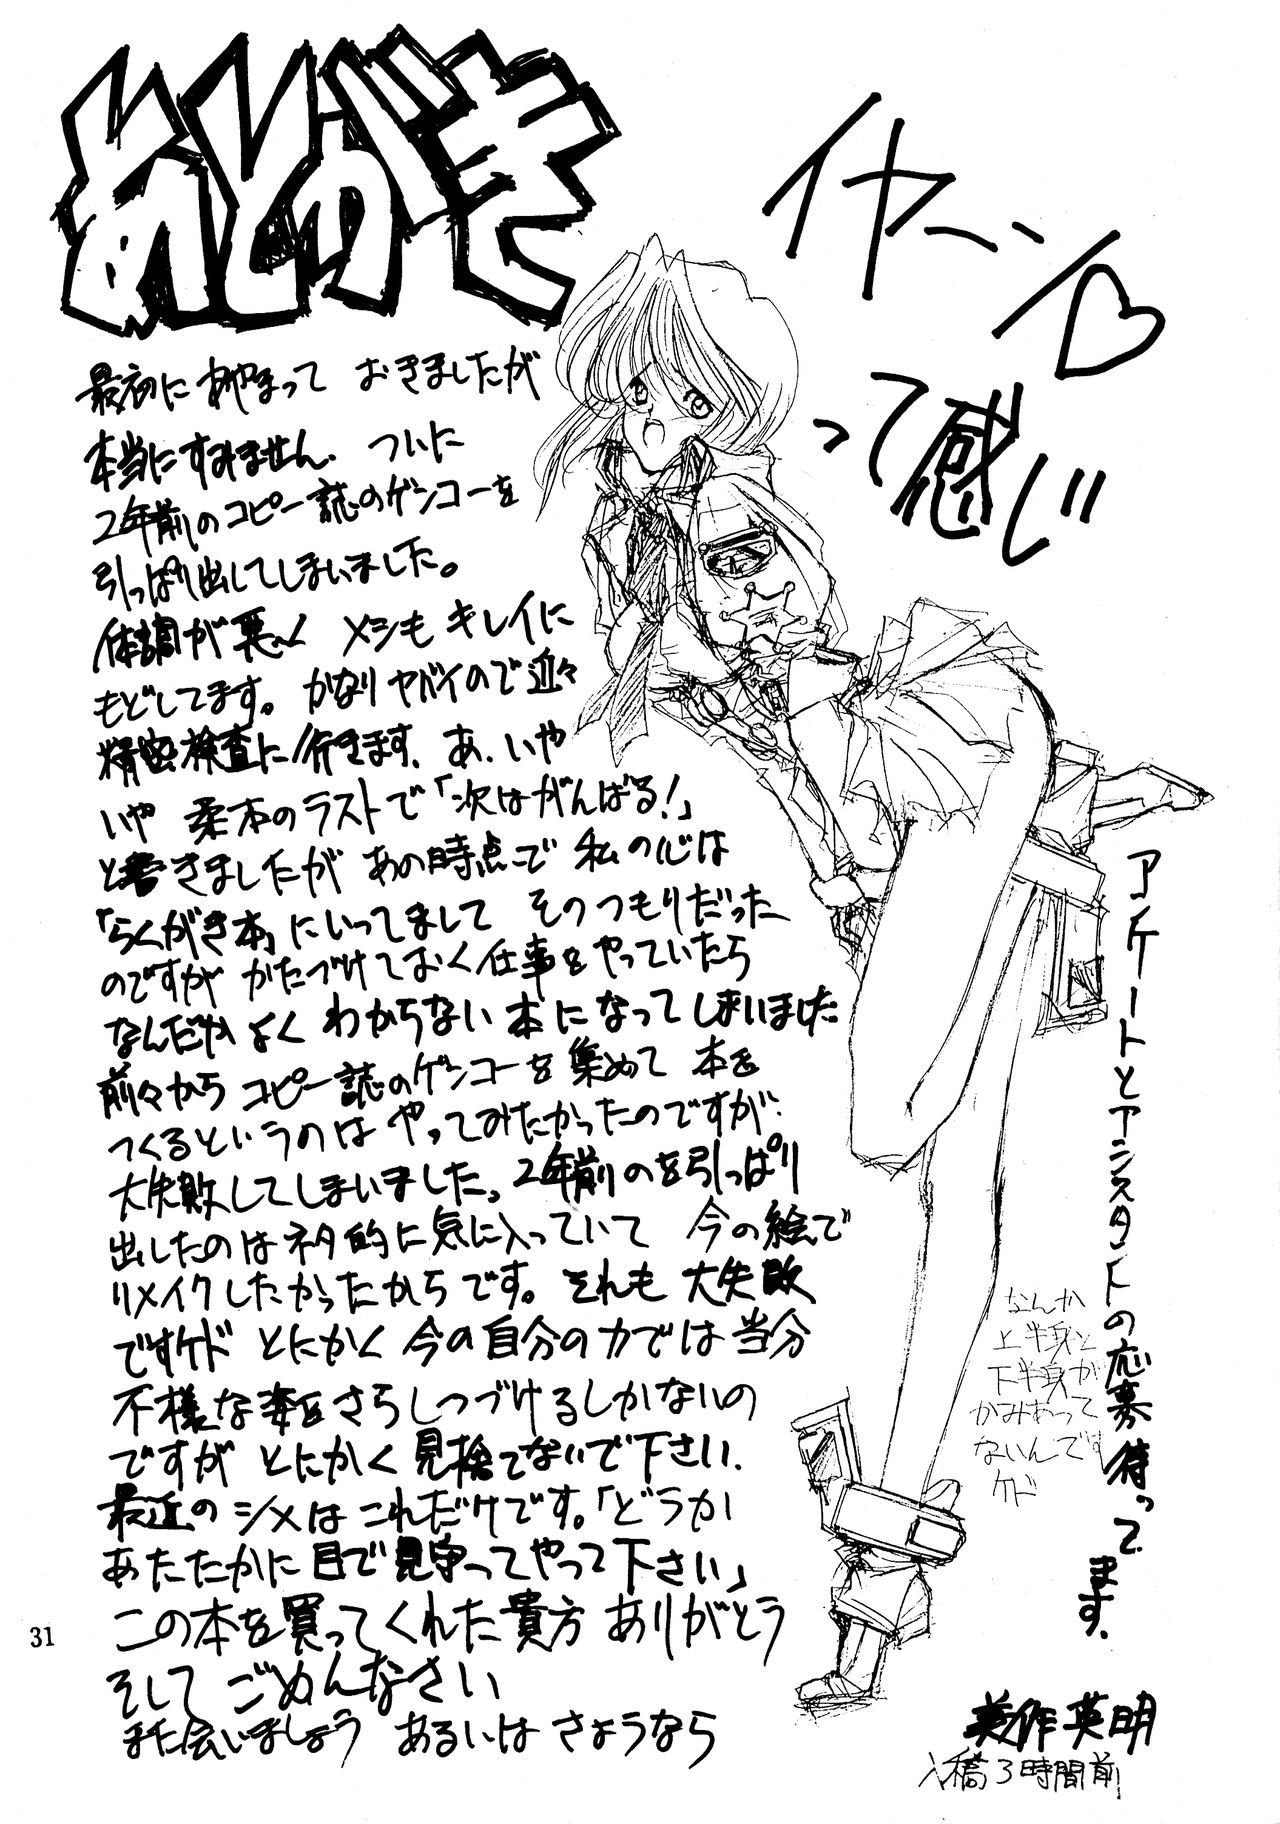 あとがき
イヤーン♡
って感じ
最初に あやまって おきましたが
本当にすみません、ついに
2年前のコピー誌のゲンコーを
引っぱり出してしまいました。
体調が悪く メシも キレイに
もどしてます。かなりヤバイので近々
精密検査に行きます、あ、いや
いや 柔本のラストで「次はがんばる!」
と書きましたが あの時点で 私の心は
「らくがき本」にいってまして そのつもりだった
のですが かたづけておく仕事をやっていたら
なんだかよく わからない 本になってしまいました
前々から コピー誌のゲンコーを集めて 本を
つくるというのは やってみたかったのですが、
大失敗してしまいました。2年前のを引っぱり
出したのはネタ的に気に入っていて 今の絵で
リメイクしたかったからです。それも 大失敗
ですケド とにかく 今の自分の力では 当分
不様な姿をさらしつづけるしかないの
ですが とにかく 見捨てないで下さい、
最近の シメは これだけです。「どうか
あたたかに 目で 見守ってやって下さい」
この本を買ってくれた貴方 ありがとう
そして ごめんなさい
また会いましょう あるいは さようなら
アンケートとアシスタントの応募待ってます。
なんか
上半身と
下半身が
かみあって
ないんです
ケド
31
美作英明
入稿3時間前